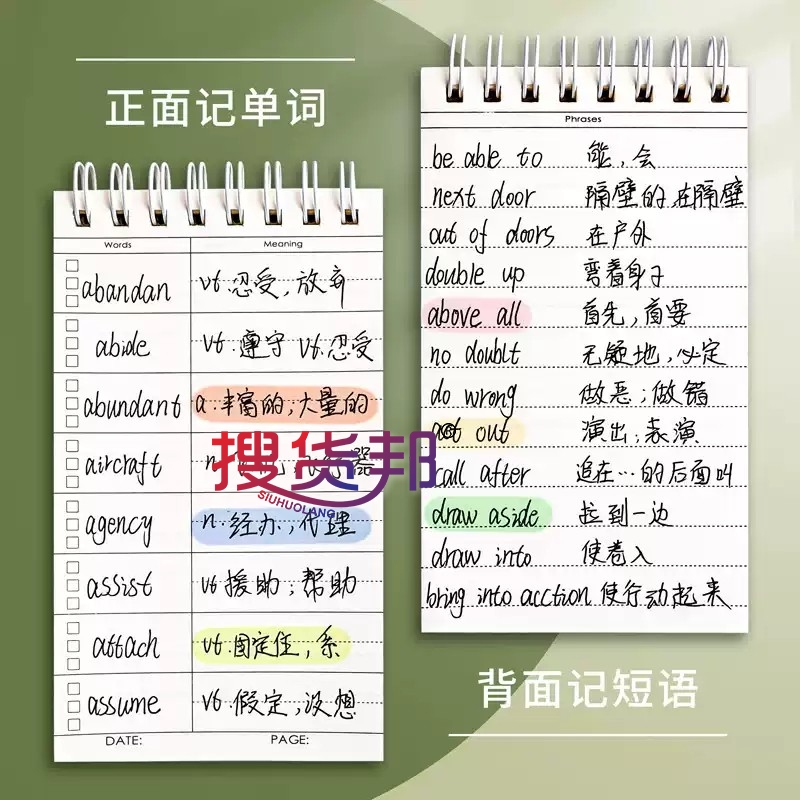 正面记单词
Words Meaning
abandan vt.忍受,放弃
abide vt.遵守 vt.忍受
abundant a.丰富的;大量的
aircraft n. 器
搜货邦
SIUHUOLANG
agency n.经办,代理
assist vt援助;帮助
attach vt.固定住,系
assume vt.假定,没想
DATE: PAGE:
Phrases
be able to 能,会
next door 隔壁的 在隔壁
out of doors 在户外
double up 弯着身子
above all 首先,首要
no doublt 无疑地,必定
do wrong 做恶;做错
act out 演出,表演
call after 追在…的后面叫
draw aside 拉到一边
draw into 使卷入
bring into acction 使行动起来
背面记短语